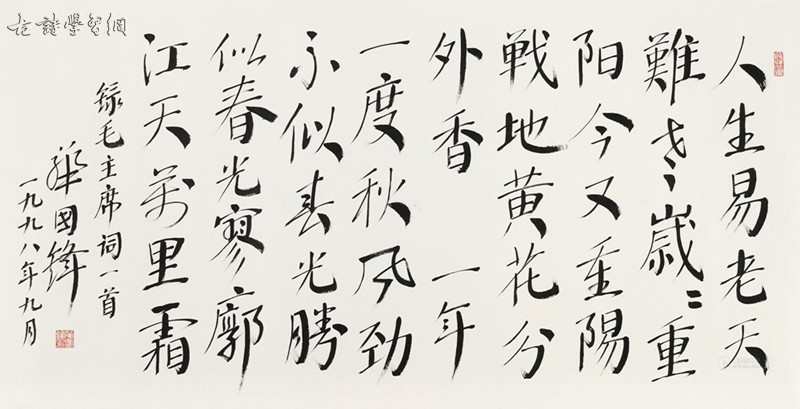 人生易老天
難老歲々重
阳今又重陽
戦地黄花分
外香 一年
一度秋风劲
不似春光勝
似春光寥廓
江天萬里霜
録毛主席词一首
華國鋒
一九九八年九月